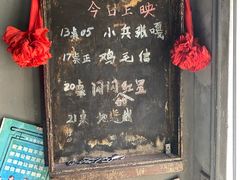 今日上映
13点05 小兵张嘎
17点正 鸡毛信
20点 闪闪的红星
21点 地道战